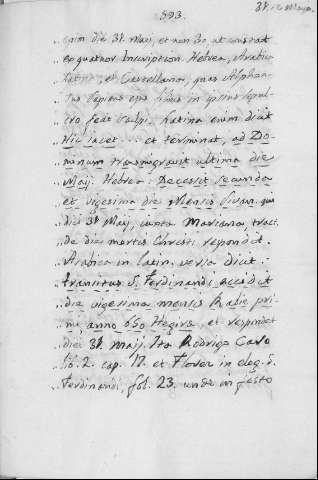 593.
31. de Mayo.
enim die 31. Maij, et non 30 ut constat
ex quatuor Inscription. Hebrea, Arabica
Latina, et Castellana, quas Alphon-
sus Sapiens ejus filius in ipsius sepul-
cro fecit sculpi. Latina enim dicit
Hic jacet ... et terminat, ad Do-
minum transmigravit ultima die
Maij. Hebrea: Decessit secunda
et vigesima die Mensis Sivan. quæ
die 31 Maij, juxta Mariana, tract.
de die mortis Christi respondet.
Arabica in latin. versa dicit
transitus S. Ferdinandi accidit
die vigesima mensis Rabie pri-
mi, anno 650 Hegiræ, et respondet
diei 31. Maij. Ita Rodrigo Caro
lib. 2. cap. 17. et Florez in elog. S.
Ferdinandi, fol. 23. unde in festo